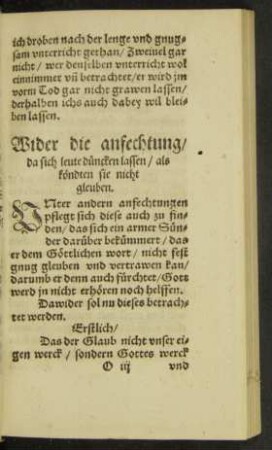 ich droben nach der lenge vnd gnug-
sam vnterricht gethan / Zweiuel gar
nicht / wer denselben vnterricht wol
einnimmet vn̄ betrachtet / er wird jm
vorm Tod gar nicht grawen lassen /
derhalben ichs auch dabey wil blei-
ben lassen.
Wider die anfechtung /
da sich leute düncken lassen / als
köndten sie nicht
gleuben.
VNter andern anfechtungen
pflegt sich diese auch zu fin-
den / das sich ein armer Sün-
der darüber bekümmert / das
er dem Göttlichen wort / nicht fest
gnug gleuben vnd vertrawen kan /
darumb er denn auch fürchtet / Gott
werd jn nicht erhören noch helffen.
Dawider sol nu dieses betrach-
tet werden.
Erstlich /
Das der Glaub nicht vnser ei-
gen werck / sondern Gottes werck
O iij vnd